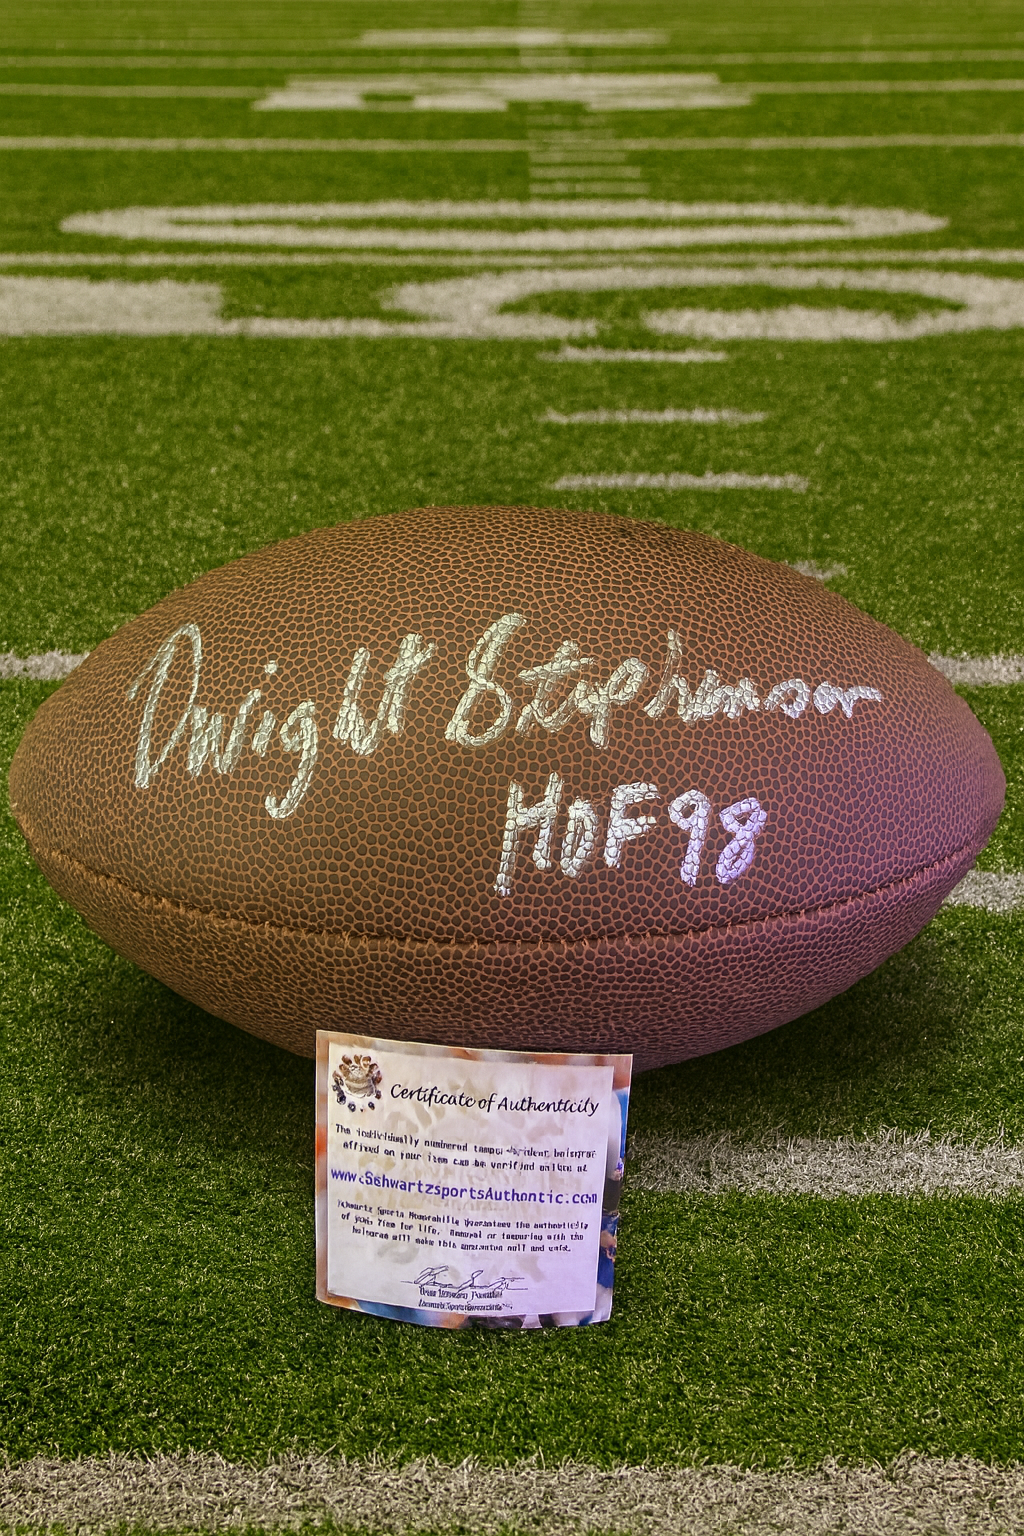 Dwight Stephenson
HOF 98
Certificate of Authenticity
The individually numbered hologram
on your item can be verified online at
www.SchwartzsportsAuthentic.com
Sports Memorabilia guarantees the authenticity
of your item for life. Removal or tampering with the
hologram will make this guarantee null and